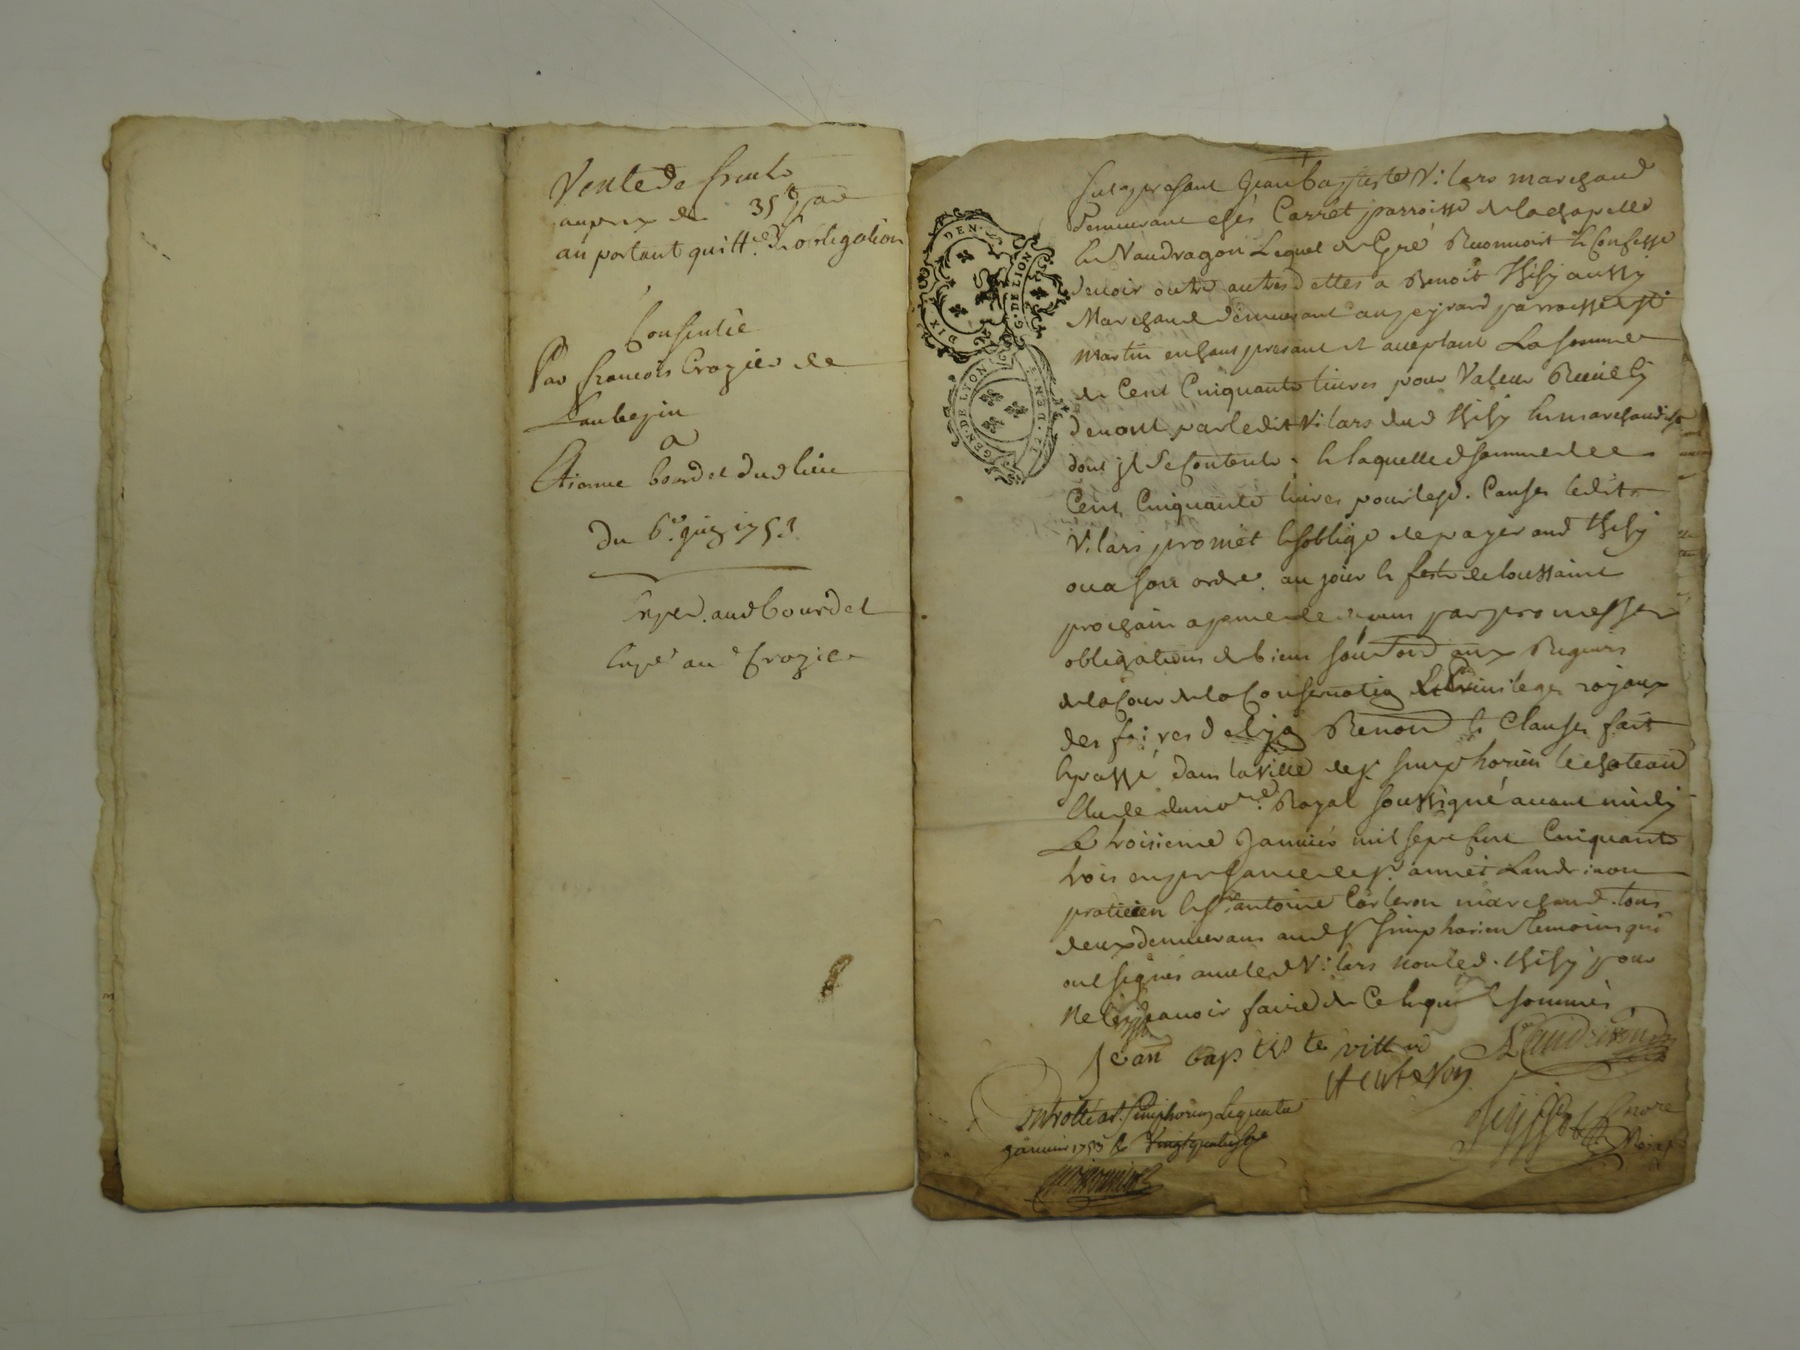 Vente de fruits
au prix de 35 ₶ par
an portant quitt.ce d'obligation
Consentie
Par francois Crozier de
Laubepin
a
Etienne bourdet dud lieu
du 6.e 1753
Exped. aud bourdet
Expe au Crozier
GEN. DE LION
DIX DEN.
GEN. DE LYON
Fut present Jean baptiste Vilars marchand
demeurant chés Carret parroisse de la chapelle
en Vaudragon Lequel de gré Reconnoit et Confesse
devoir outre autres dettes a Benoit Thisy aussy
Marchand demeurant au parroisse st
martin en haut present et acceptant La somme
de Cent Cinquante livres pour Valeur Receüe cy
devant par ledit Vilars dud Thisy en marchandise
dont jl Se Contente. et laquelle d somme de
Cent Cinquante livres pour lesd. Causes ledit
Vilars promet et soblige de payer aud Thisy
ou a son ordre. au jour et feste de toussaint
prochain a peine de par promesses
obligations de biens aux Rigueurs
de la Cour de la Conservation Privileges royaux
des foires de Lyon Renon et Clauses fait
et passé dans la Ville de st simphorien le chateau
Etude du no.re Royal soussigné avant midy
Le troisieme Janvier mil sept Cent Cinquante
trois en presence de sr. annet Landrivon
praticien et sr. antoine Carteron marchand. tous
deux demeurans aud st simphorien temoins qui
ont signés avec led Vilars non led. thisy pour
ne le scavoir faire de Ce enquis et sommés
Jean baptiste villar
Landrivon
Controllé a st. simphorien Le quatre
janvier 1753 R vingt quatre sols